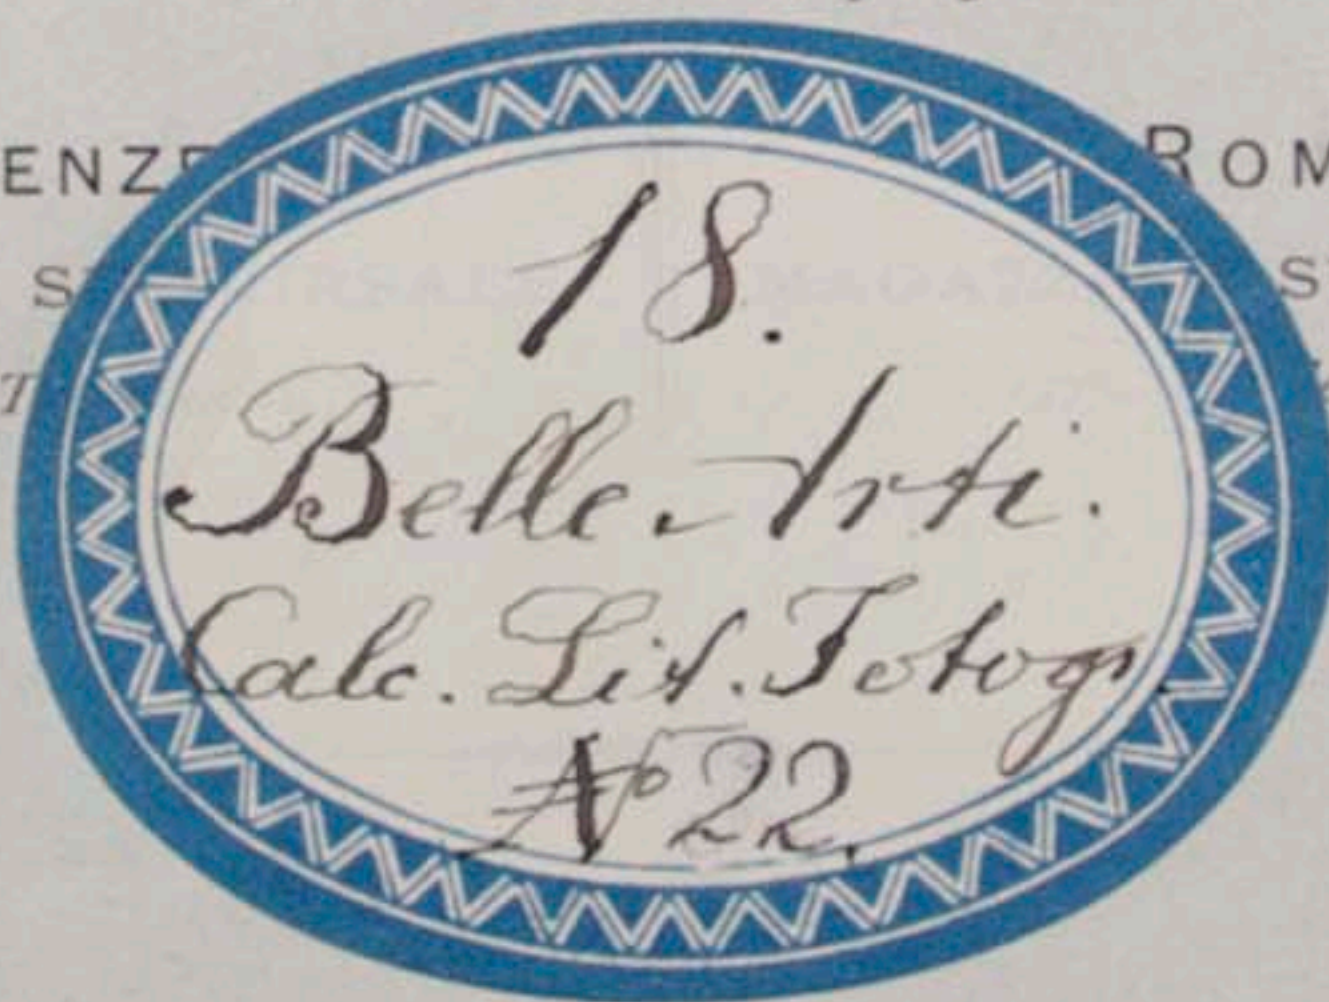 ENZE ROM
18.
Belle Arti.
Calc. Lit. Fotogr.
No 22.